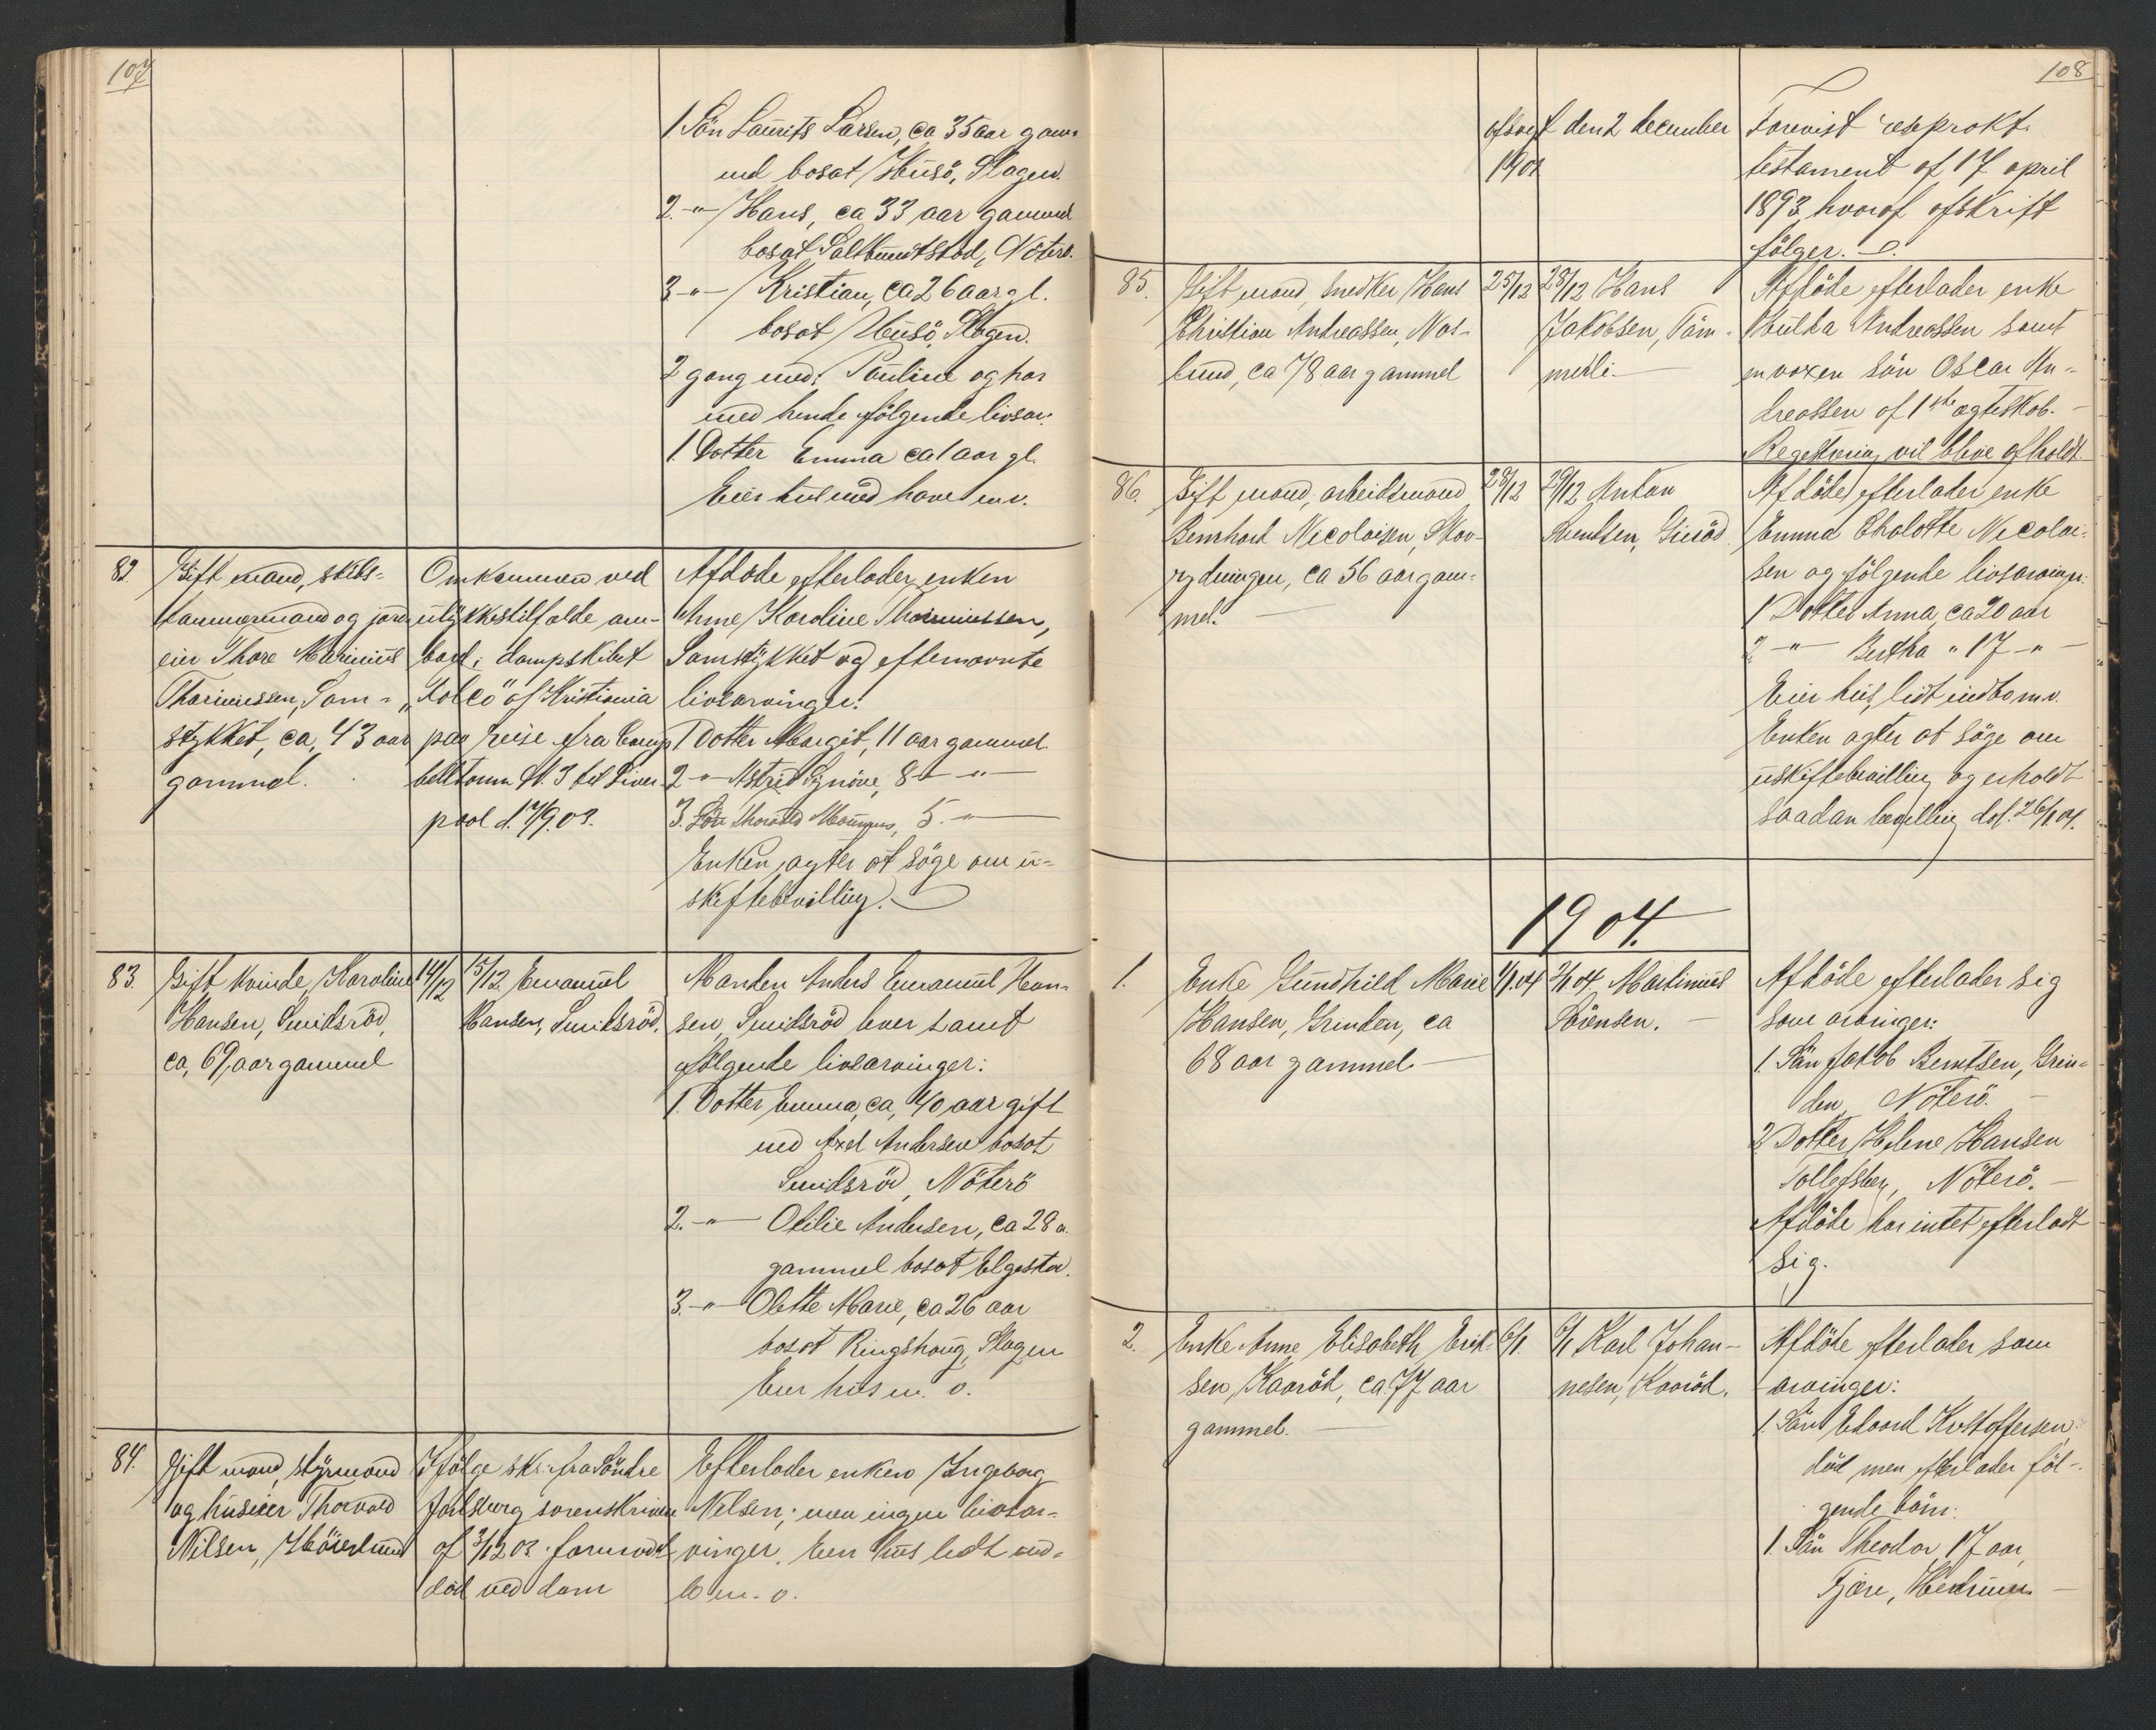 107
1. Sön Laurits Larsen, ca 35 aar gam-
mel bosat Husö, Slagen.
2. -"- Hans, ca 33 aar gammel
bosat Saltbuudtstod, Nöterö.
3 -"- Kristian, ca 26 aar gl.
bosat Husö, Slagen.
2 gang med: Pauline og har
med hende følgende livsarv.
1. Dotter Emma ca 1 aar gl.
Eier hus med have m.v.
82. Gift mand, skibs-
tømmermand og jord-
eier Thore Marinius
Thorinussen, Sam-
stykket, ca, 43 aar
gammel.
Omkommen ved
ulykkestilfælde om-
bord i dampskibet
af Kristiania
paa reise fra Camp-
belltown N. S til Liver-
pool d. 7/9.03.
Afdøde efterlader enken
Anne Karoline Thorinussen,
Samstykket og efternævnte
livsarvinger:
1 Dotter Margit, 11 aar gammel
2 -"- Astrid Synöve, 8 - " -
3. Sön Thorvald Magnus, 5. -"-
Enken agter at søge om u-
skiftebevilling.
83. Gift kvinde, Karoline
Hansen, Smidsröd,
ca, 69 aar gammel
14/12
15/12. Emanuel
Hansen, Smidsröd.
Manden Anders Emanuel Han-
sen, Smidsröd lever samt
følgende livsarvinger:
1. Dotter Emma, ca, 40 aar gift
med Axel Andersen bosat
Smidsröd, Nöterö
2. -"- Otilie Andersen, ca 28 a.
gammel bosat Elgestad.
3. -"- Olette Marie, ca 26 aar
bosat Ringshaug, Slagen
Eier hus m. v.
84. Gift mand, styrmand
og huseier Thorvald
Nilsen, Höielund
Ifølge skr. fra Söndre
Jarlsberg sorenskriveri
af 3/12 03. formodet
död ved dom
Efterlader enken Ingeborg
Nilsen; men ingen livsar-
vinger. Eier hus lidt ind-
bo m. v.
108
afsagt den 2 december
1901
Forevist respekt.
testament af 17 april
1893, hvoraf afskrift
følger.
85. Gift mand, snedker Hans
Christian Andreassen, Nas-
lund, ca 78 aar gammel
25/12
28/12 Hans
Jakobsen, Töm-
merli.
Afdøde efterlader enke
Hulda Andreassen samt
en voxen sön Oscar An-
dreassen af 1ste ægteskab.
Registrering vil blive afholdt
86. Gift mand, arbeidsmand
Bernhard Nicolaisen, Skov-
rydningen, ca 56 aar gam-
mel.
28/12
29/12 Anton
Svendsen,
Afdöde efterlader enke
Emma Cholotte Nicolai-
sen og følgende livsarvinger:
1 Dotter Anna, ca 20 aar
2 -"- Bertha " 17 -"-
Eier hus, lidt indbo m.v.
Enken agter at söge om
uskiftebevilling og erholdt
saadan bevilling dat. 26/1 04.
1904.
1. Enke Gundhild Marie
Hansen, Grinden, ca
68 aar gammel
1/1.04
2/1 04. Martinius
Sörensen.
Afdöde efterlader sig
som arvinger:
1. Sön Jakob Berntsen, Grin-
den, Nöterö.
2 Dotter Helene Hansen
Tollefsberg, Nöterö.
Afdöde har intet efterladt
sig.
2. Enke Anne Elisabeth Erik-
sen, Kaaröd, ca 77 aar
gammel.
6/1
6/1 Karl Johan-
nesen, Kaaröd.
Afdöde efterlader som
arvinger:
1. Sön Edvard Kristoffersen,
död men efterlader föl-
gende börn:
1. Sön Theodor 17 aar,
Tjære, Hedrum